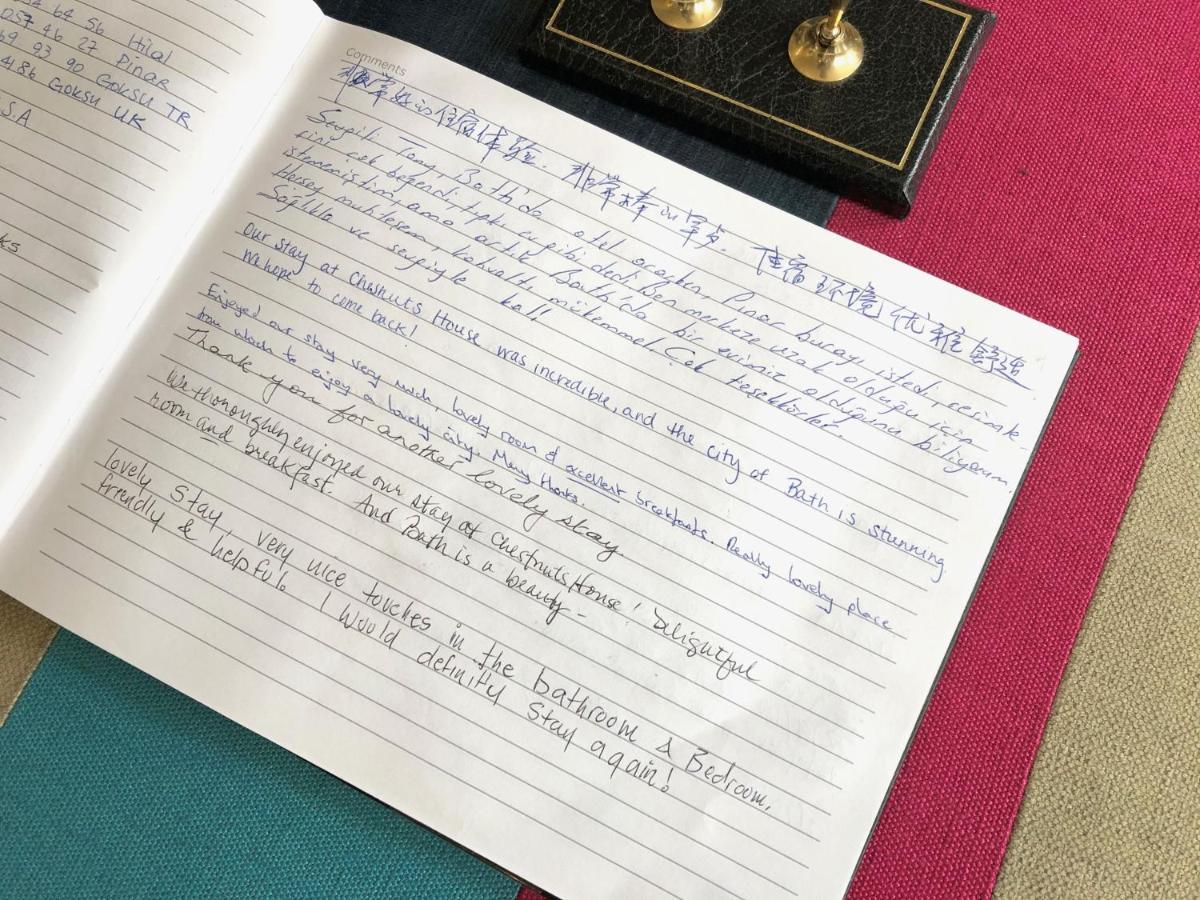 64 56 Hilal
057 46 27 Pinar
69 93 90 Goksu TR
4186 Goksu UK
S.A
ks
Comments
非常好的住宿体验. 非常棒的早点. 住宿环境优雅舒适
Sevgili Tony, Bath'da otel ararken, Pınar burayı istedi, resimle-
rini çok beğendi, tıpkı ev gibi dedi. Ben merkeze uzak olduğu için
istememiştim, ama artık Bath'da bir evimiz olduğunu biliyorum.
Herşey muhteşem, kahvaltı mükemmel. Çok teşekkürler.
Sağlıkla ve sevgiyle kal!
Our stay at Chesnuts House was incredible, and the city of Bath is stunning
We hope to come back!
Enjoyed our stay very much, lovely room & excellent breakfasts. Really lovely place
from which to enjoy a lovely city. Many thanks.
Thank you for another lovely stay
We thoroughly enjoyed our stay at Chestnuts House! Delightful
room and breakfast. And Bath is a beauty -
lovely stay, very nice touches in the bathroom & Bedroom,
friendly & helpful. I would definity stay again!